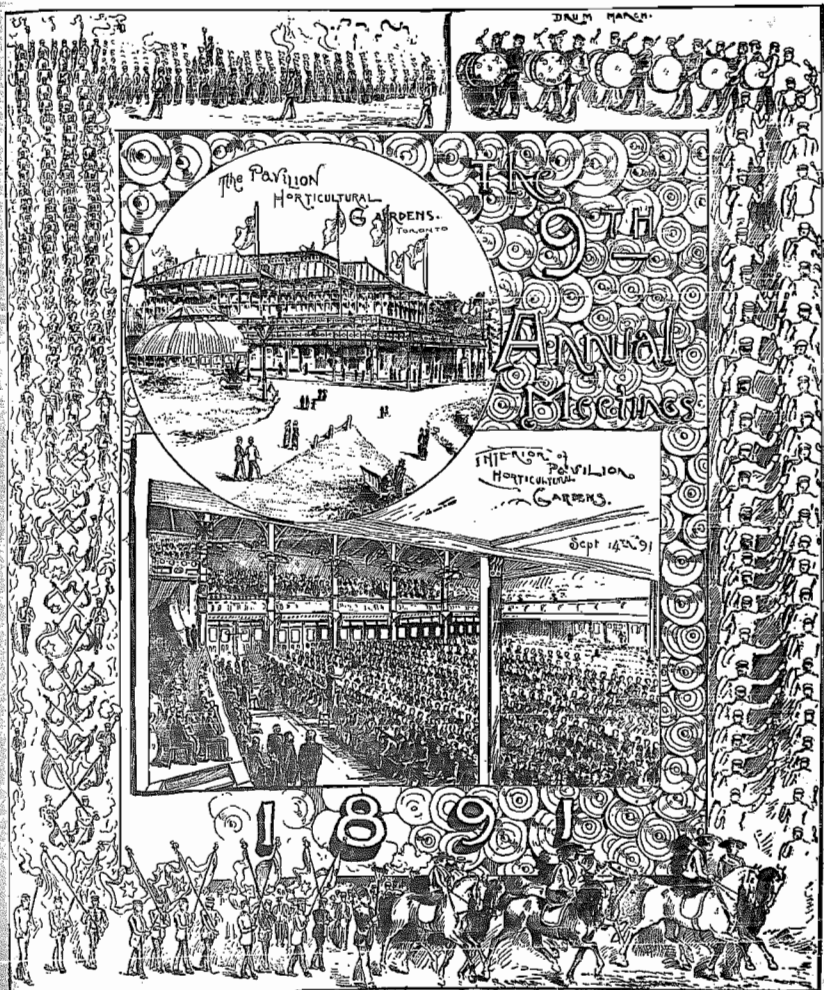 DRUM MARCH.
The PAVILION
HORTICULTURAL
GARDENS.
TORONTO
The
9TH
Annual
Meetings
INTERIOR of
PAVILION
HORTICULTURAL
GARDENS.
Sept 14th '91
1891